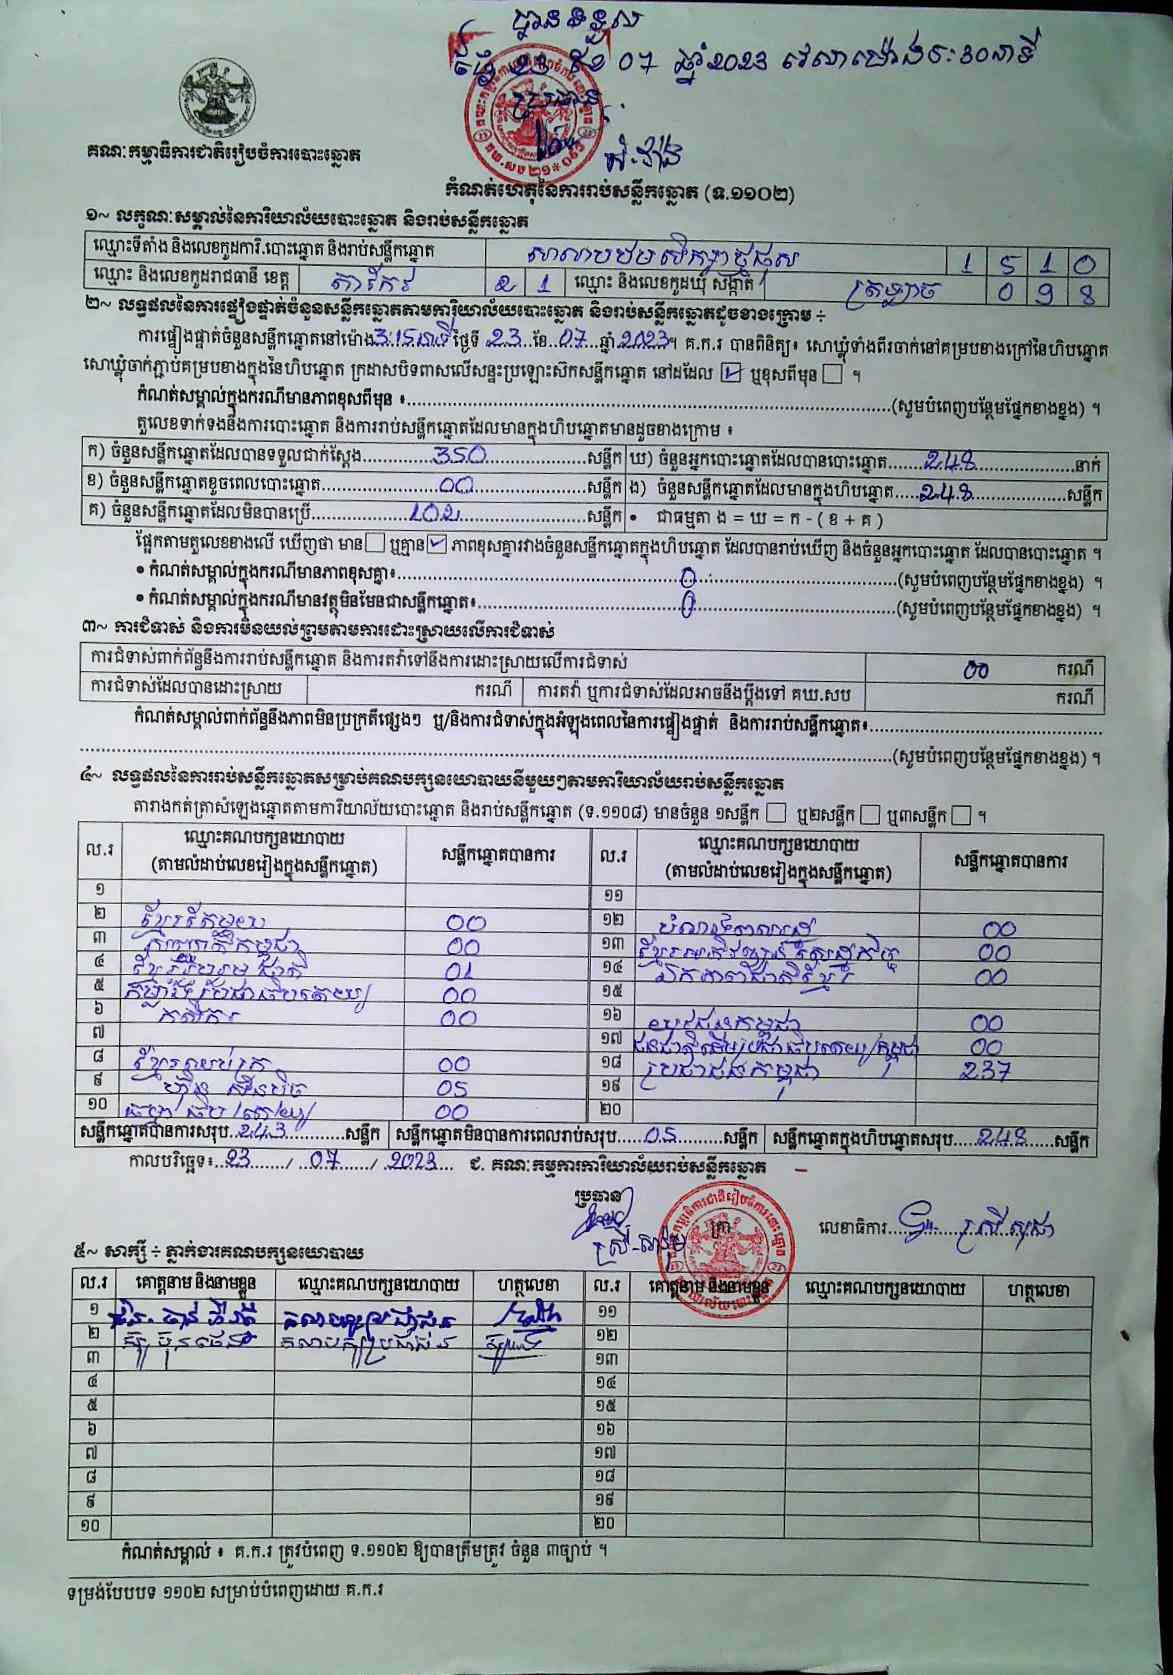 បានទទួល
ថ្ងៃ 23 ខែ 07 ឆ្នាំ 2023 វេលាម៉ោង 30 នាទី
ប្រធាន
គណៈកម្មាធិការជាតិរៀបចំការបោះឆ្នោត
កំណត់ហេតុនៃការរាប់សន្លឹកឆ្នោត (ទ.១១០២)
១~ លក្ខណៈសម្គាល់នៃការិយាល័យបោះឆ្នោត និងរាប់សន្លឹកឆ្នោត
ឈ្មោះទីតាំង និងលេខកូដការិ.បោះឆ្នោត និងរាប់សន្លឹកឆ្នោត 1 5 1 0
ឈ្មោះ និងលេខកូដរាជធានី ខេត្ត តាកែវ 2 1 ឈ្មោះ និងលេខកូដឃុំ សង្កាត់ 0 9 8
២~ លទ្ធផលនៃការផ្ទៀងផ្ទាត់ចំនួនសន្លឹកឆ្នោតតាមការិយាល័យបោះឆ្នោត និងរាប់សន្លឹកឆ្នោតដូចខាងក្រោម ÷
ការផ្ទៀងផ្ទាត់ចំនួនសន្លឹកឆ្នោតនៅម៉ោង 3:15 នាទី ថ្ងៃទី 23 ខែ 07 ឆ្នាំ 2023 ។ គ.ក.រ បានពិនិត្យ៖ សោឃ្លុំទាំងពីរចាក់នៅគម្របខាងក្រៅនៃហិបឆ្នោត
សោឃ្លុំចាក់ភ្ជាប់គម្របខាងក្នុងនៃហិបឆ្នោត ក្រដាសបិទពាសលើសន្ទះប្រឡោះស៊កសន្លឹកឆ្នោត នៅដដែល ឬខុសពីមុន ។
កំណត់សម្គាល់ក្នុងករណីមានភាពខុសពីមុន ៖ (សូមបំពេញបន្ថែមផ្នែកខាងខ្នង) ។
តួលេខទាក់ទងនឹងការបោះឆ្នោត និងការរាប់សន្លឹកឆ្នោតដែលមានក្នុងហិបឆ្នោតមានដូចខាងក្រោម ៖
ក) ចំនួនសន្លឹកឆ្នោតដែលបានទទួលជាក់ស្តែង 350 សន្លឹក ឃ) ចំនួនអ្នកបោះឆ្នោតដែលបានបោះឆ្នោត 248 នាក់
ខ) ចំនួនសន្លឹកឆ្នោតខូចពេលបោះឆ្នោត 00 សន្លឹក ង) ចំនួនសន្លឹកឆ្នោតដែលមានក្នុងហិបឆ្នោត 248 សន្លឹក
គ) ចំនួនសន្លឹកឆ្នោតដែលមិនបានប្រើ 102 សន្លឹក • ជាធម្មតា ង = ឃ = ក - ( ខ + គ )
ផ្អែកតាមតួលេខខាងលើ ឃើញថា មាន ឬគ្មាន ភាពខុសគ្នារវាងចំនួនសន្លឹកឆ្នោតក្នុងហិបឆ្នោត ដែលបានរាប់ឃើញ និងចំនួនអ្នកបោះឆ្នោត ដែលបានបោះឆ្នោត ។
• កំណត់សម្គាល់ក្នុងករណីមានភាពខុសគ្នា៖ 0 (សូមបំពេញបន្ថែមផ្នែកខាងខ្នង) ។
• កំណត់សម្គាល់ក្នុងករណីមានវត្ថុមិនមែនជាសន្លឹកឆ្នោត៖ 0 (សូមបំពេញបន្ថែមផ្នែកខាងខ្នង) ។
៣~ ការជំទាស់ និងការមិនយល់ព្រមតាមការដោះស្រាយលើការជំទាស់
ការជំទាស់ពាក់ព័ន្ធនឹងការរាប់សន្លឹកឆ្នោត និងការតវ៉ាទៅនឹងការដោះស្រាយលើការជំទាស់ 00 ករណី
ការជំទាស់ដែលបានដោះស្រាយ ករណី ការតវ៉ា ឬការជំទាស់ដែលអាចនឹងប្តឹងទៅ គឃ.សប ករណី
កំណត់សម្គាល់ពាក់ព័ន្ធនឹងភាពមិនប្រក្រតីផ្សេងៗ ឬ/និងការជំទាស់ក្នុងអំឡុងពេលនៃការផ្ទៀងផ្ទាត់ និងការរាប់សន្លឹកឆ្នោត៖
(សូមបំពេញបន្ថែមផ្នែកខាងខ្នង) ។
៤~ លទ្ធផលនៃការរាប់សន្លឹកឆ្នោតសម្រាប់គណបក្សនយោបាយនីមួយៗតាមការិយាល័យរាប់សន្លឹកឆ្នោត
តារាងកត់ត្រាសំឡេងឆ្នោតតាមការិយាល័យបោះឆ្នោត និងរាប់សន្លឹកឆ្នោត (ទ.១១០៨) មានចំនួន ១សន្លឹក ឬ២សន្លឹក ឬ៣សន្លឹក ។
ល.រ ឈ្មោះគណបក្សនយោបាយ (តាមលំដាប់លេខរៀងក្នុងសន្លឹកឆ្នោត) សន្លឹកឆ្នោតបានការ ល.រ ឈ្មោះគណបក្សនយោបាយ (តាមលំដាប់លេខរៀងក្នុងសន្លឹកឆ្នោត) សន្លឹកឆ្នោតបានការ
១ ១១
២ 00 ១២ 00
៣ 00 ១៣ 00
៤ 01 ១៤ ឯកភាពជាតិខ្មែរ 00
៥ 00 ១៥
៦ កសិករ 00 ១៦ យុវជនកម្ពុជា 00
៧ ១៧ 00
៨ 00 ១៨ ប្រជាជនកម្ពុជា 237
៩ ហ្វ៊ុនស៊ិនប៉ិច 05 ១៩
១០ 00 ២០
សន្លឹកឆ្នោតបានការសរុប 243 សន្លឹក សន្លឹកឆ្នោតមិនបានការពេលរាប់សរុប 05 សន្លឹក សន្លឹកឆ្នោតក្នុងហិបឆ្នោតសរុប 248 សន្លឹក
កាលបរិច្ឆេទ៖ 23 / 07 / 2023 ជ. គណៈកម្មការការិយាល័យរាប់សន្លឹកឆ្នោត
ប្រធាន
លេខាធិការ
៥~ សាក្សី ÷ ភ្នាក់ងារគណបក្សនយោបាយ
ល.រ គោត្តនាម និងនាមខ្លួន ឈ្មោះគណបក្សនយោបាយ ហត្ថលេខា ល.រ គោត្តនាម និងនាមខ្លួន ឈ្មោះគណបក្សនយោបាយ ហត្ថលេខា
១ ១១
២ ១២
៣ ១៣
៤ ១៤
៥ ១៥
៦ ១៦
៧ ១៧
៨ ១៨
៩ ១៩
១០ ២០
កំណត់សម្គាល់ ៖ គ.ក.រ ត្រូវបំពេញ ទ.១១០២ ឱ្យបានត្រឹមត្រូវ ចំនួន ៣ច្បាប់ ។
ទម្រង់បែបបទ ១១០២ សម្រាប់បំពេញដោយ គ.ក.រ